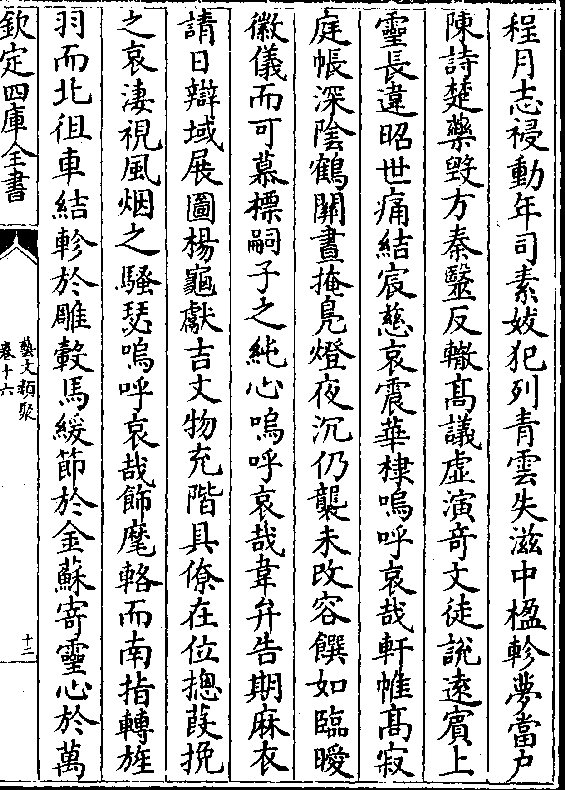 程月志祲動年司素妭犯列青雲失滋中楹軫夢當户
陳詩楚藥毁方秦毉反轍髙議虚演竒文徒說逺賓上
靈長違昭世痛結宸慈哀震華棣嗚呼哀哉軒帷髙寂
庭帳深陰鶴關晝掩鳬燈夜沉仍襲未改容饌如臨曖
徽儀而可慕摽嗣子之純心嗚呼哀哉韋弁告期麻衣
請日辯域展圖楊龜獻吉文物充階具僚在位摠葭挽
之哀淒視風烟之騷瑟嗚呼哀哉飾麾輅而南指轉旌
羽而北徂車結軫於雕轂馬緩節於金蘇寄靈心於萬
欽定四庫全書
藝文類聚
卷十六
十二